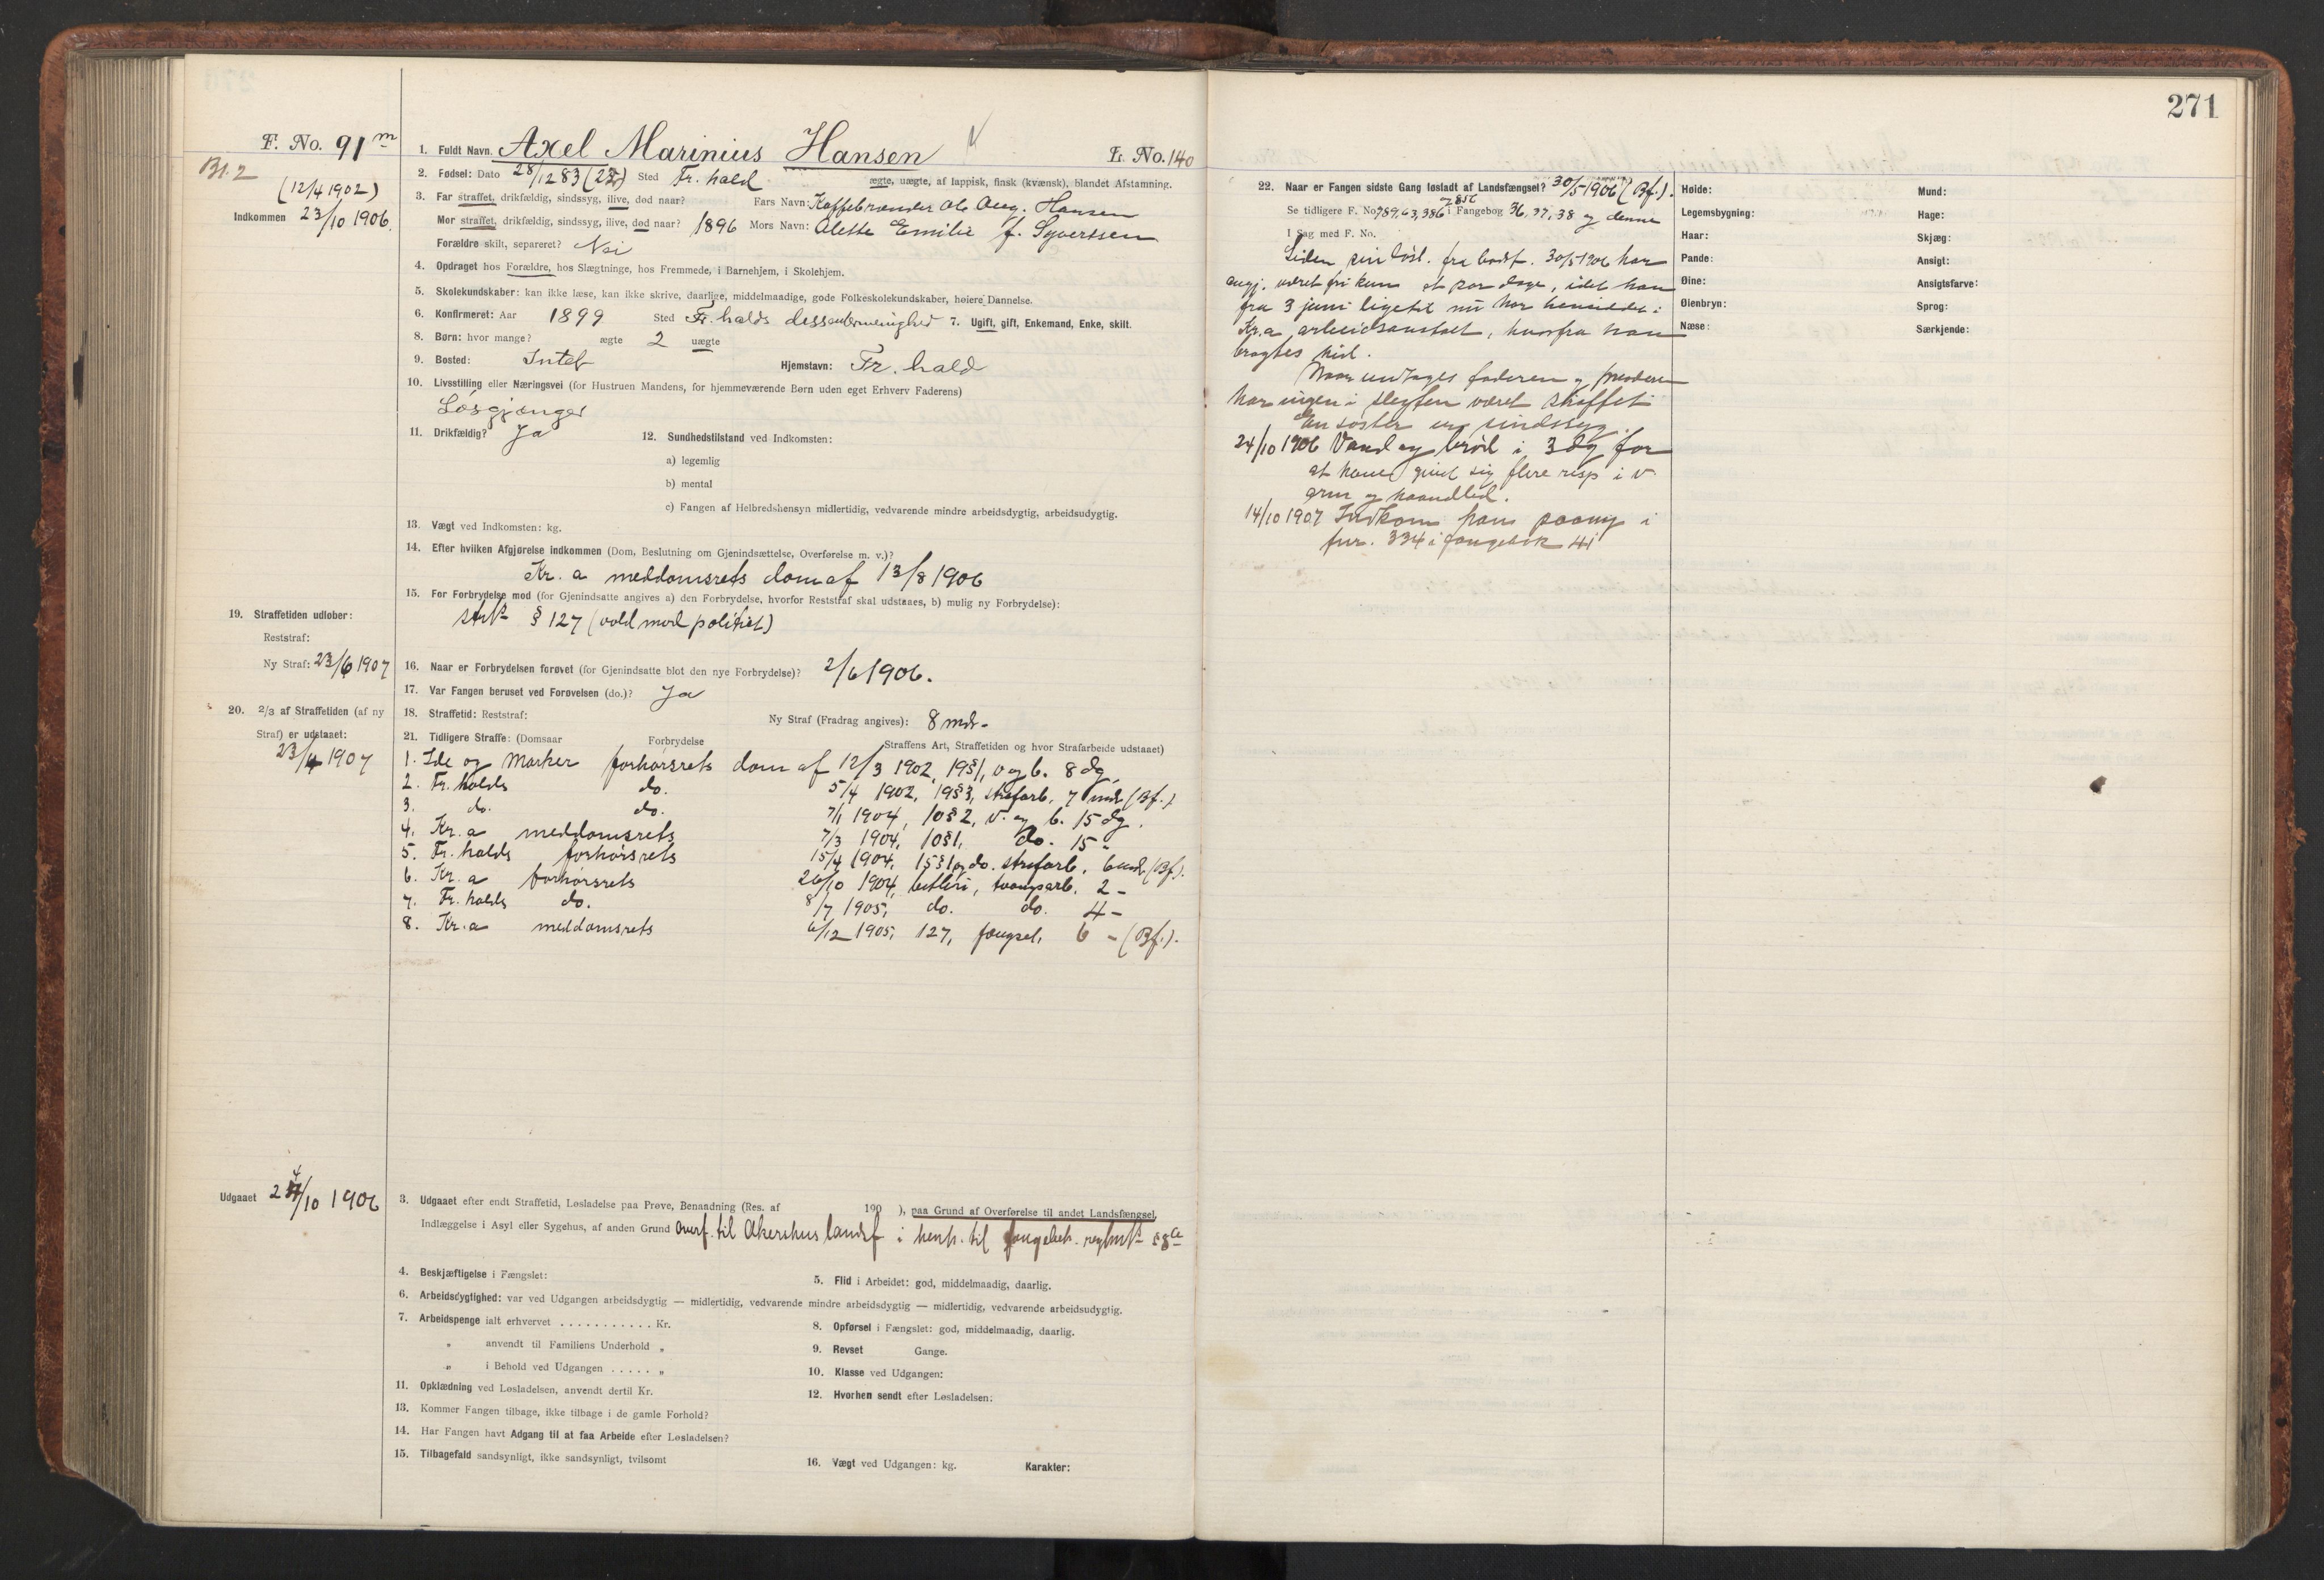 271
F. No. 91 m
Bl. 2
(12/4 1902)
Indkommen 23/10 1906.
1. Fuldt Navn. Axel Marinius Hansen
L. No. 140
2. Fødsel: Dato 28/12 83 (22) Sted Fr.hald ægte, uægte, af lappisk, finsk (kvænsk), blandet Afstamning.
3. Far straffet, drikfældig, sindssyg, ilive, død naar? Fars Navn: Kaffebrænder Ole Aug. Hansen
Mor straffet, drikfældig, sindssyg, ilive, død naar? 1896 Mors Navn: Alette Emilie f. Syvertsen
Forældre skilt, separeret? Nei
4. Opdraget hos Forældre, hos Slægtninge, hos Fremmede, i Barnehjem, i Skolehjem.
5. Skolekundskaber: kan ikke læse, kan ikke skrive, daarlige, middelmaadige, gode Folkeskolekundskaber, høiere Dannelse.
6. Konfirmeret: Aar 1899 Sted Fr.halds dissentermenighed 7. Ugift, gift, Enkemand, Enke, skilt.
8. Børn: hvor mange? ægte 2 uægte
9. Bosted: Intet Hjemstavn: Fr.hald
10. Livsstilling eller Næringsvei (for Hustruen Mandens, for hjemmeværende Børn uden eget Erhverv Faderens)
Løsgjænger
11. Drikfældig? Ja 12. Sundhedstilstand ved Indkomsten:
a) legemlig
b) mental
c) Fangen af Helbredshensyn midlertidig, vedvarende mindre arbeidsdygtig, arbeidsudygtig.
13. Vægt ved Indkomsten: kg.
14. Efter hvilken Afgjørelse indkommen (Dom, Beslutning om Gjenindsættelse, Overførelse m. v.)?
Kr.a meddomsrets dom af 13/8 1906
15. For Forbrydelse mod (for Gjenindsatte angives a) den Forbrydelse, hvorfor Reststraf skal udstaaes, b) mulig ny Forbrydelse):
§ 127 (vold mod politiet)
19. Straffetiden udløber:
Reststraf:
Ny Straf: 23/6 1907
16. Naar er Forbrydelsen forøvet (for Gjenindsatte blot den nye Forbrydelse)? 2/6 1906.
17. Var Fangen beruset ved Forøvelsen (do.)? Ja
20. 2/3 af Straffetiden (af ny Straf) er udstaaet:
23/4 1907
18. Straffetid: Reststraf: Ny Straf (Fradrag angives): 8 mdr.
21. Tidligere Straffe: (Domsaar Forbrydelse Straffens Art, Straffetiden og hvor Strafarbeide udstaaet)
1. Ide og Marker forhørsrets dom af 12/3 1902, 19§1, v og b. 8 dg.
2. Fr.halds do. 5/4 1902, 19§3, strafarb. 7 mdr (Bf.)
3. do. do. 7/1 1904, 10§2, v. og b. 15 dg.
4. Kr.a meddomsrets 7/3 1904, 10§1, do. 15 "
5. Fr.halds forhørsrets 15/4 1904, 15§1 og do. strafarb. 6 mdr. (Bf).
6. Kr.a forhørsrets 26/10 1904, betleri, tvangsarb. 2 –
7. Fr.halds do. 8/7 1905, do. do. 4 –
8. Kr.a meddomsrets 6/12 1905, 127, fængsel, 6 – (Bf.).
Udgaaet 24/10 1906
3. Udgaaet efter endt Straffetid, Løsladelse paa Prøve, Benaadning (Res. af 190 ), paa Grund af Overførelse til andet Landsfængsel,
Indlæggelse i Asyl eller Sygehus, af anden Grund Overf. til Akershus landsf i henh. til
4. Beskjæftigelse i Fængslet: 5. Flid i Arbeidet: god, middelmaadig, daarlig.
6. Arbeidsdygtighed: var ved Udgangen arbeidsdygtig — midlertidig, vedvarende mindre arbeidsdygtig — midlertidig, vedvarende arbeidsudygtig.
7. Arbeidspenge ialt erhvervet . . . . . . . . . . . Kr. 8. Opførsel i Fængslet: god, middelmaadig, daarlig.
" anvendt til Familiens Underhold " 9. Revset Gange.
" i Behold ved Udgangen . . . . . " 10. Klasse ved Udgangen:
11. Opklædning ved Løsladelsen, anvendt dertil Kr. 12. Hvorhen sendt efter Løsladelsen:
13. Kommer Fangen tilbage, ikke tilbage i de gamle Forhold?
14. Har Fangen havt Adgang til at faa Arbeide efter Løsladelsen?
15. Tilbagefald sandsynligt, ikke sandsynligt, tvilsomt 16. Vægt ved Udgangen: kg. Karakter:
22. Naar er Fangen sidste Gang løsladt af Landsfængsel? 30/5 1906 (Bf.).
Se tidligere F. No. 789, 63, 386 og 856 i Fangebog 36, 37, 38 og denne
I Sag med F. No.
Siden sin løsl. fra bodsf. 30/5 1906 har
angj. været fri kun et par dage, idet han
fra 3 juni ligetil nu har hensiddet i
Kr.a arbeidsanstalt, hvorfra han
bragtes hid.
Naar undtages faderen og moderen
har ingen i slegten været straffet
En søster er sindssyg.
24/10 1906 Vand og brød i 3 dg for
at have givet sig flere risp i v.
arm og haandled.
14/10 1907 Indkom han paany i
fnr. 334 i fangebok 41
Høide:
Legemsbygning:
Haar:
Pande:
Øine:
Øienbryn:
Næse:
Mund:
Hage:
Skjæg:
Ansigt:
Ansigtsfarve:
Sprog:
Særkjende: